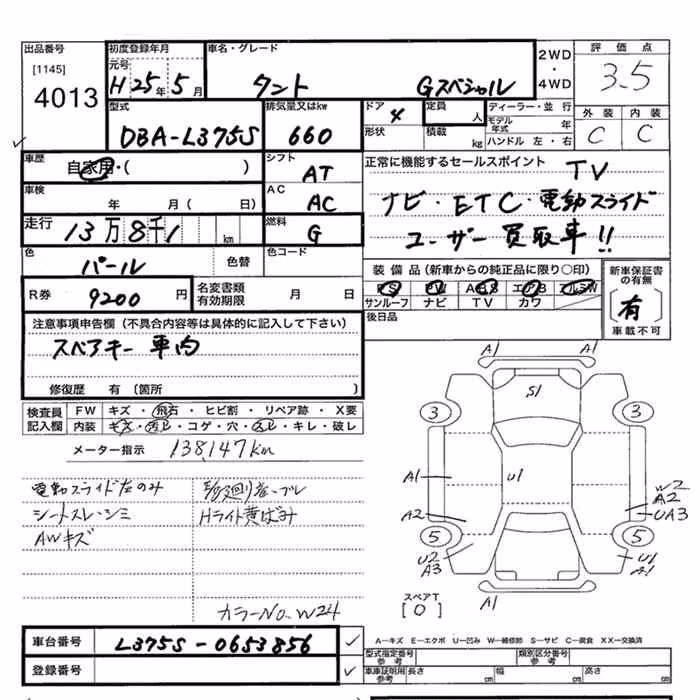 出品番号
[1145]
4013
初度登録年月
元号
H 25年 5月
車名・グレード
タント Gスペシャル
2WD
・
4WD
評価点
3.5
外装 内装
C C
型式
DBA-L375S
排気量又はkw
660
ドア
4
形状
定員
人
積載
kg
ディーラー・並行
モデル年式 年
ハンドル 左・右
車歴
自家用・( )
シフト
AT
正常に機能するセールスポイント
TV
ナビ・ETC・電動スライド
ユーザー買取車!!
車検
年 月( 日)
AC
AC
走行
13万8千1 km
燃料
G
色
パール
色替
色コード
装備品(新車からの純正品に限り○印)
PS PW ABS エアB アルミW
サンルーフ ナビ TV カワ
新車保証書の有無
有
車載不可
R券
9200円
名変書類有効期限
月 日
後日品
注意事項申告欄(不具合内容等は具体的に記入して下さい)
スペアキー車内
修復歴 有〔箇所 〕
検査員記入欄
FW キズ・飛石・ヒビ割・リペア跡・X要
内装 キズ・汚レ・コゲ・穴・スレ・キレ・破レ
メーター指示 138,147km
電動スライド左のみ
シートスレ・シミ
Hライト黄ばみ
AWキズ
カラーNo. W24
A1 A1
S1
3 3
A1
U1
W2
A2
UA3
A2
5 5
U2
A3
U1
A1
A1
スペアT
[0]
車台番号
L375S-0653856
登録番号
A-キズ E-エクボ U-凹み W-補修跡 S-サビ C-腐食 XX-交換済
型式指定番号
参考
類別区分番号
参考
車庫証明用
参考
長さ cm 幅 cm 高さ cm